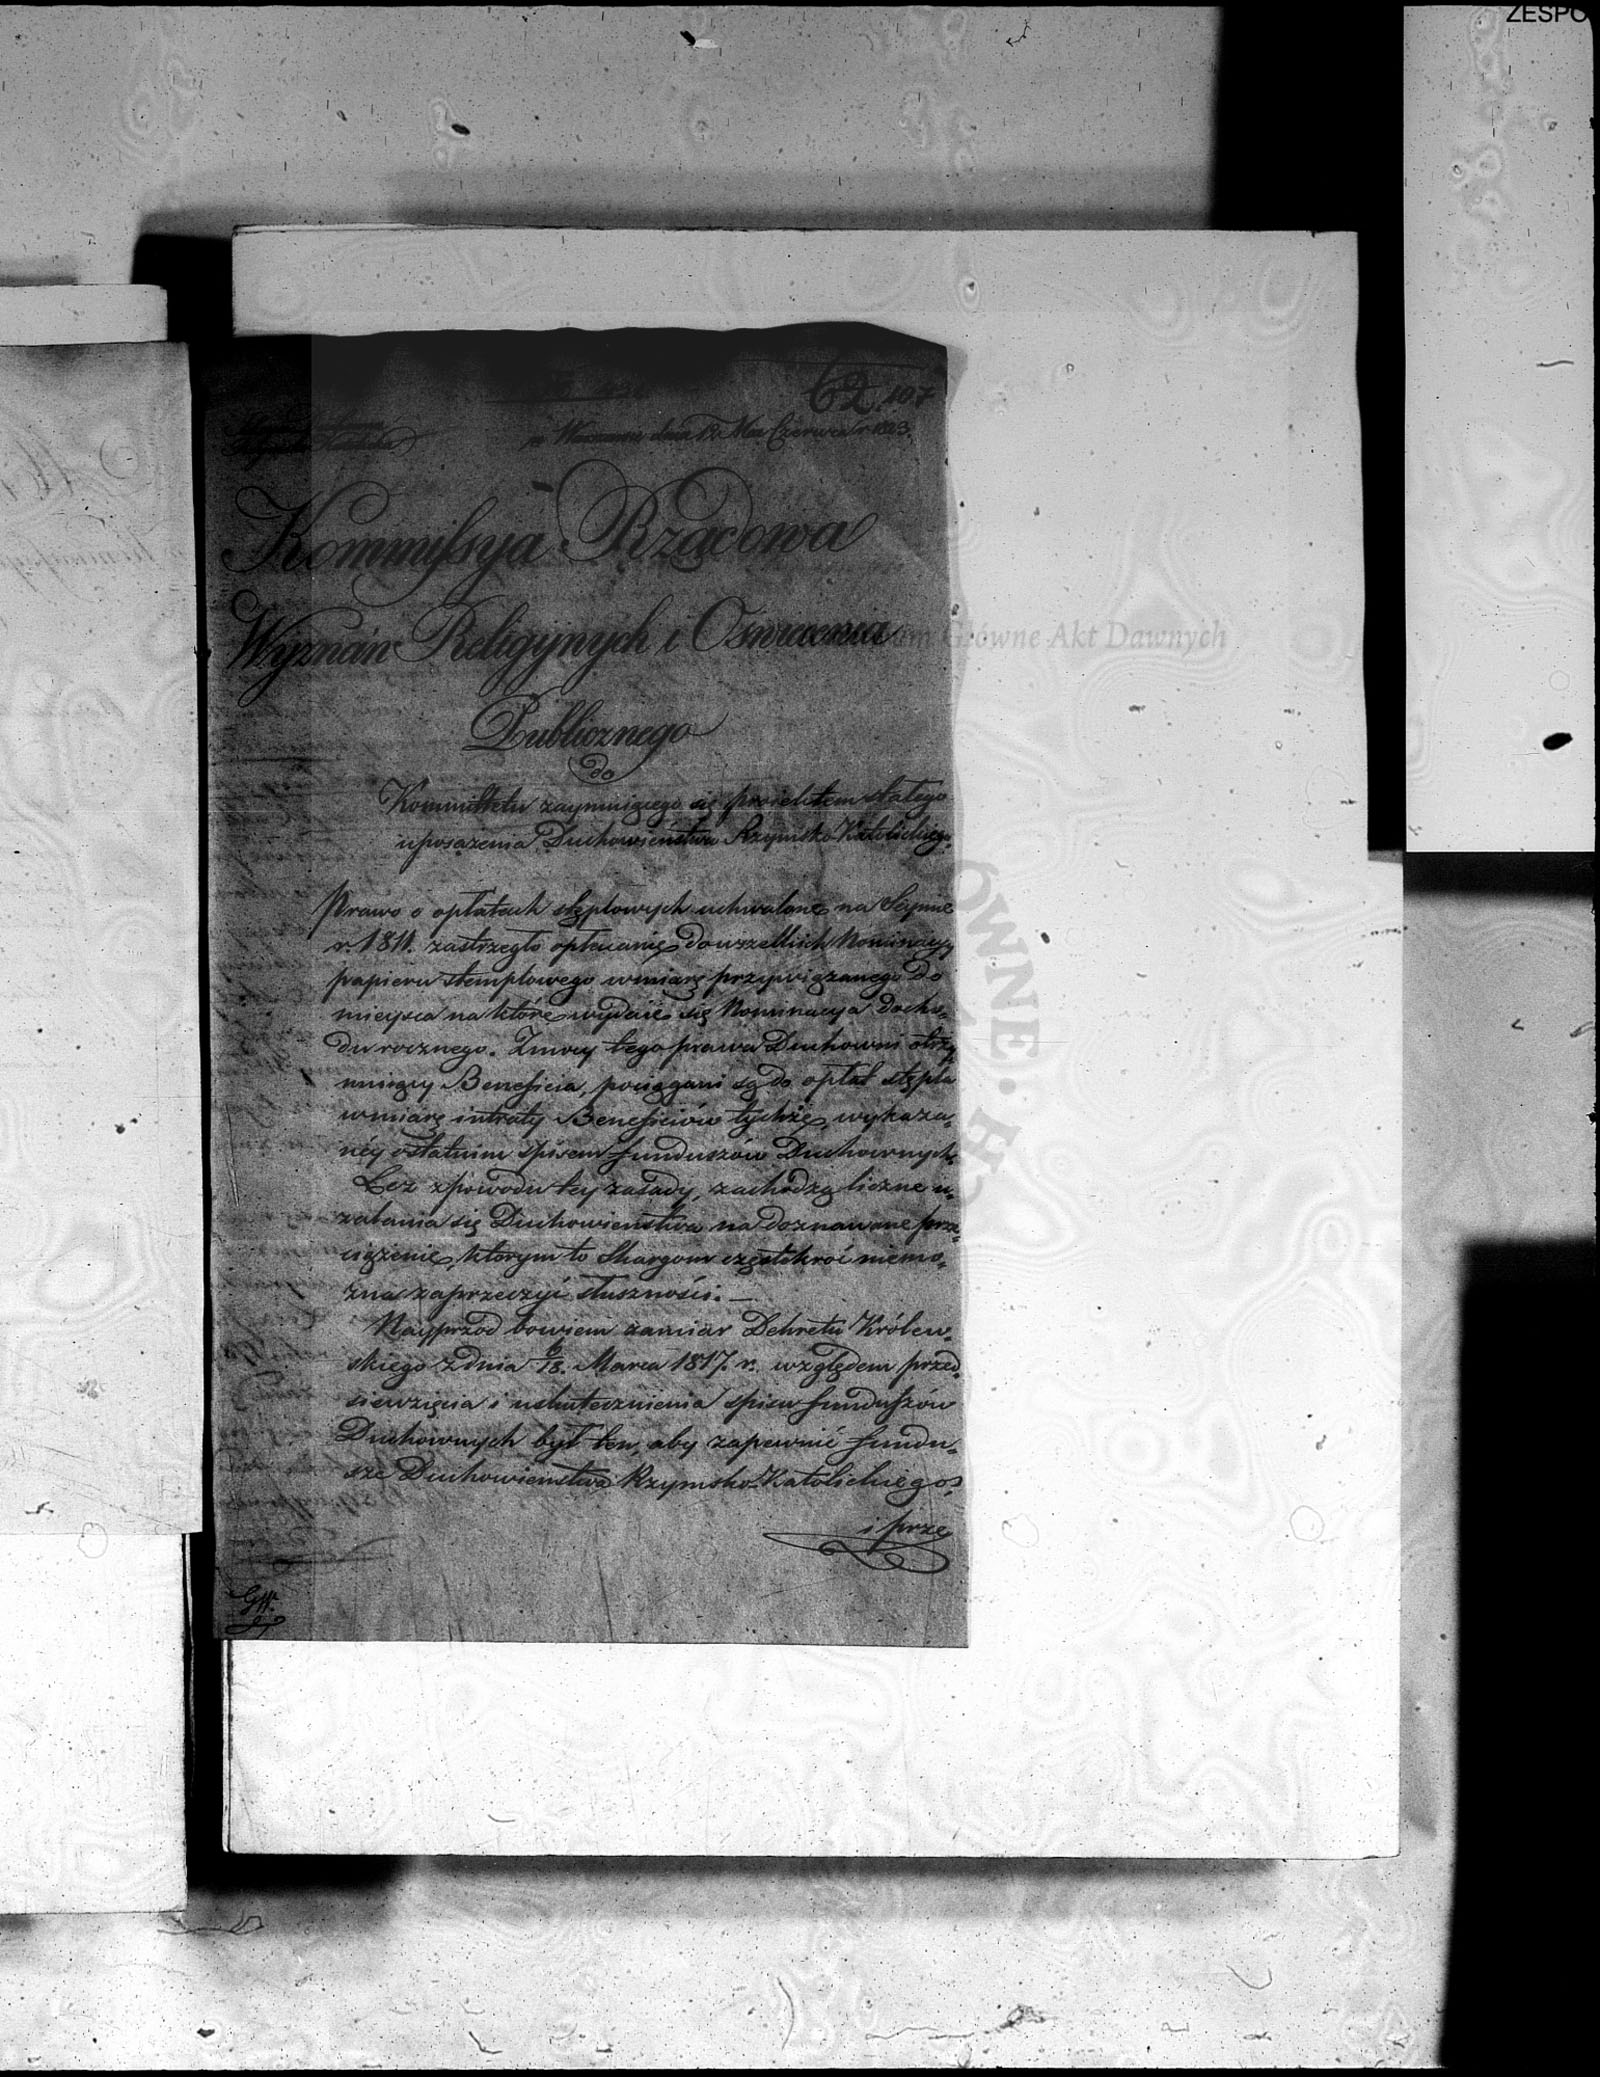 ZESPO
62. 107
w Warszawie dnia 12 Mca Czerwca r. 1823.
Kommissya Rządowa
Wyznań Religijnych i Oświecenia
Główne Akt Dawnych
Publicznego
do
Kommittetu zaymuiącego się proiektem stałego
uposażenia Duchowieństwa Rzymsko Katolickiego.
Prawo o opłatach stęplowych uchwalone na Seymie
r. 1811. zastrzegło opłacanie do wszelkich Nominacyy
papieru stemplowego w miarę przywiązanego do
mieysca na które wydaie się Nominacya docho„
du rocznego. Z mocy tego prawa Duchowni otrzy„
muiący Beneficia, pociągani są do opłat stępla
w miarę intraty Beneficiów tychże, wykaza„
néy ostatnim spisem funduszów Duchownych.
Lecz z powodu tey zasady, zachodzą liczne u„
żalania się Duchowieństwa na doznawane prze„
ciążenie, którym to Skargom częstokroć niemo„
żna zaprzeczyć słuszności. —
Nayprzod bowiem zamiar Dekretu Królew„
skiego z dnia 6/18. Marca 1817. r. względem przed„
siewzięcia i uskutecznienia spisu funduszów
Duchownych był ten, aby zapewnić fundu„
sze Duchowieństwa Rzymsko-Katolickiego,
i prze
GW.
ÓWNE · H